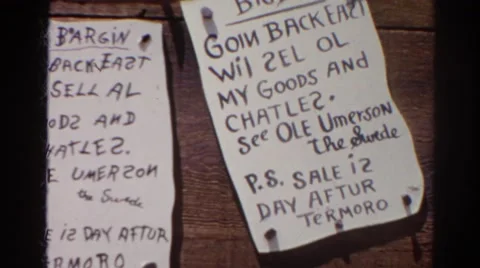 BARGIN
BACK EAST
SELL AL
ODS AND
HATLES.
E UMERSON
the Swede
E IS DAY AFTUR
ERMORO
GOIN BACK EAST
WIL SEL OL
MY GOODS AND
CHATLES.
See OLE UMERSON
the Swede
P.S. SALE IS
DAY AFTUR
TERMORO